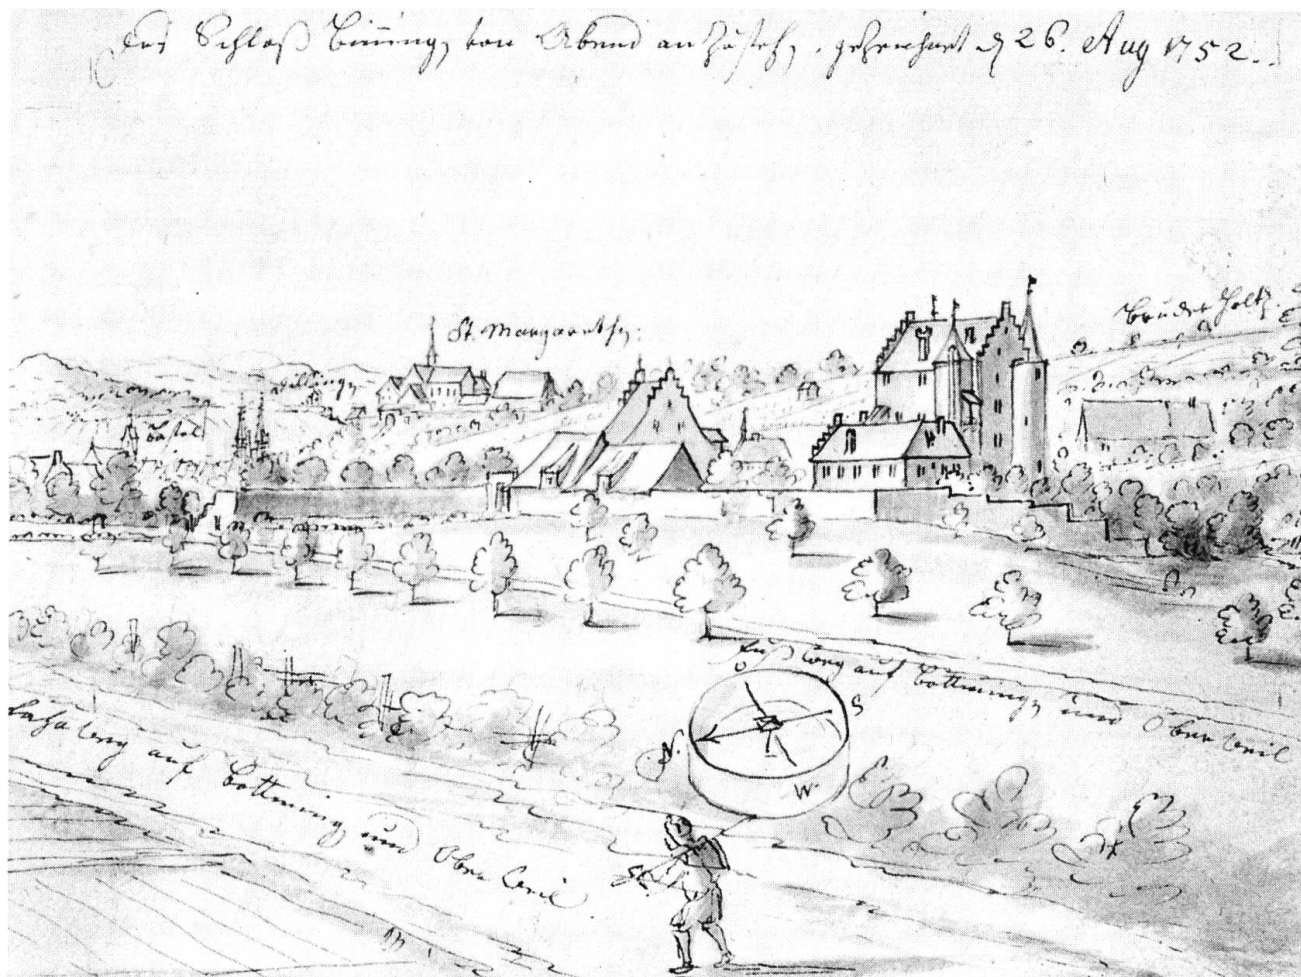 das Schloß Binningen von Abend anzusehen. gezeichnet d 26. Aug 1752.
St. Margarethen.
Bruder Holtz.
Basel
O
S
N.
W.
Fußweg auf Bottmingen und Oberweil
Fahrweg auf Bottmingen und Oberweil